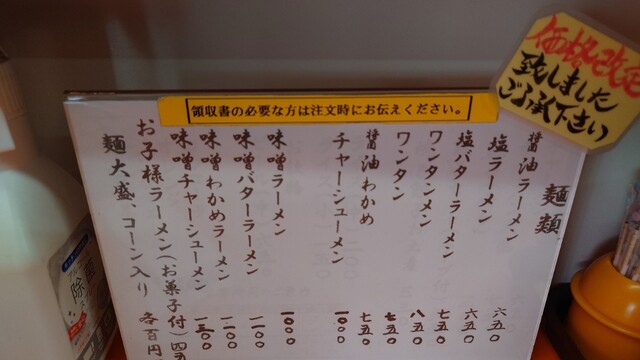 価格改定
致しました
ご了承下さい
領収書の必要な方は注文時にお伝えください。
麺類
醤油ラーメン 六五〇
塩ラーメン 六五〇
塩バターラーメン 七五〇
ワンタンメン 八五〇
ワンタン 七五〇
醤油わかめ 七五〇
チャーシューメン 一〇〇〇
味噌ラーメン 一〇〇〇
味噌バターラーメン 一一〇〇
味噌わかめラーメン 一一〇〇
味噌チャーシューメン 一三〇〇
お子様ラーメン(お菓子付) 四五
麺大盛、コーン入り 各百円
除菌